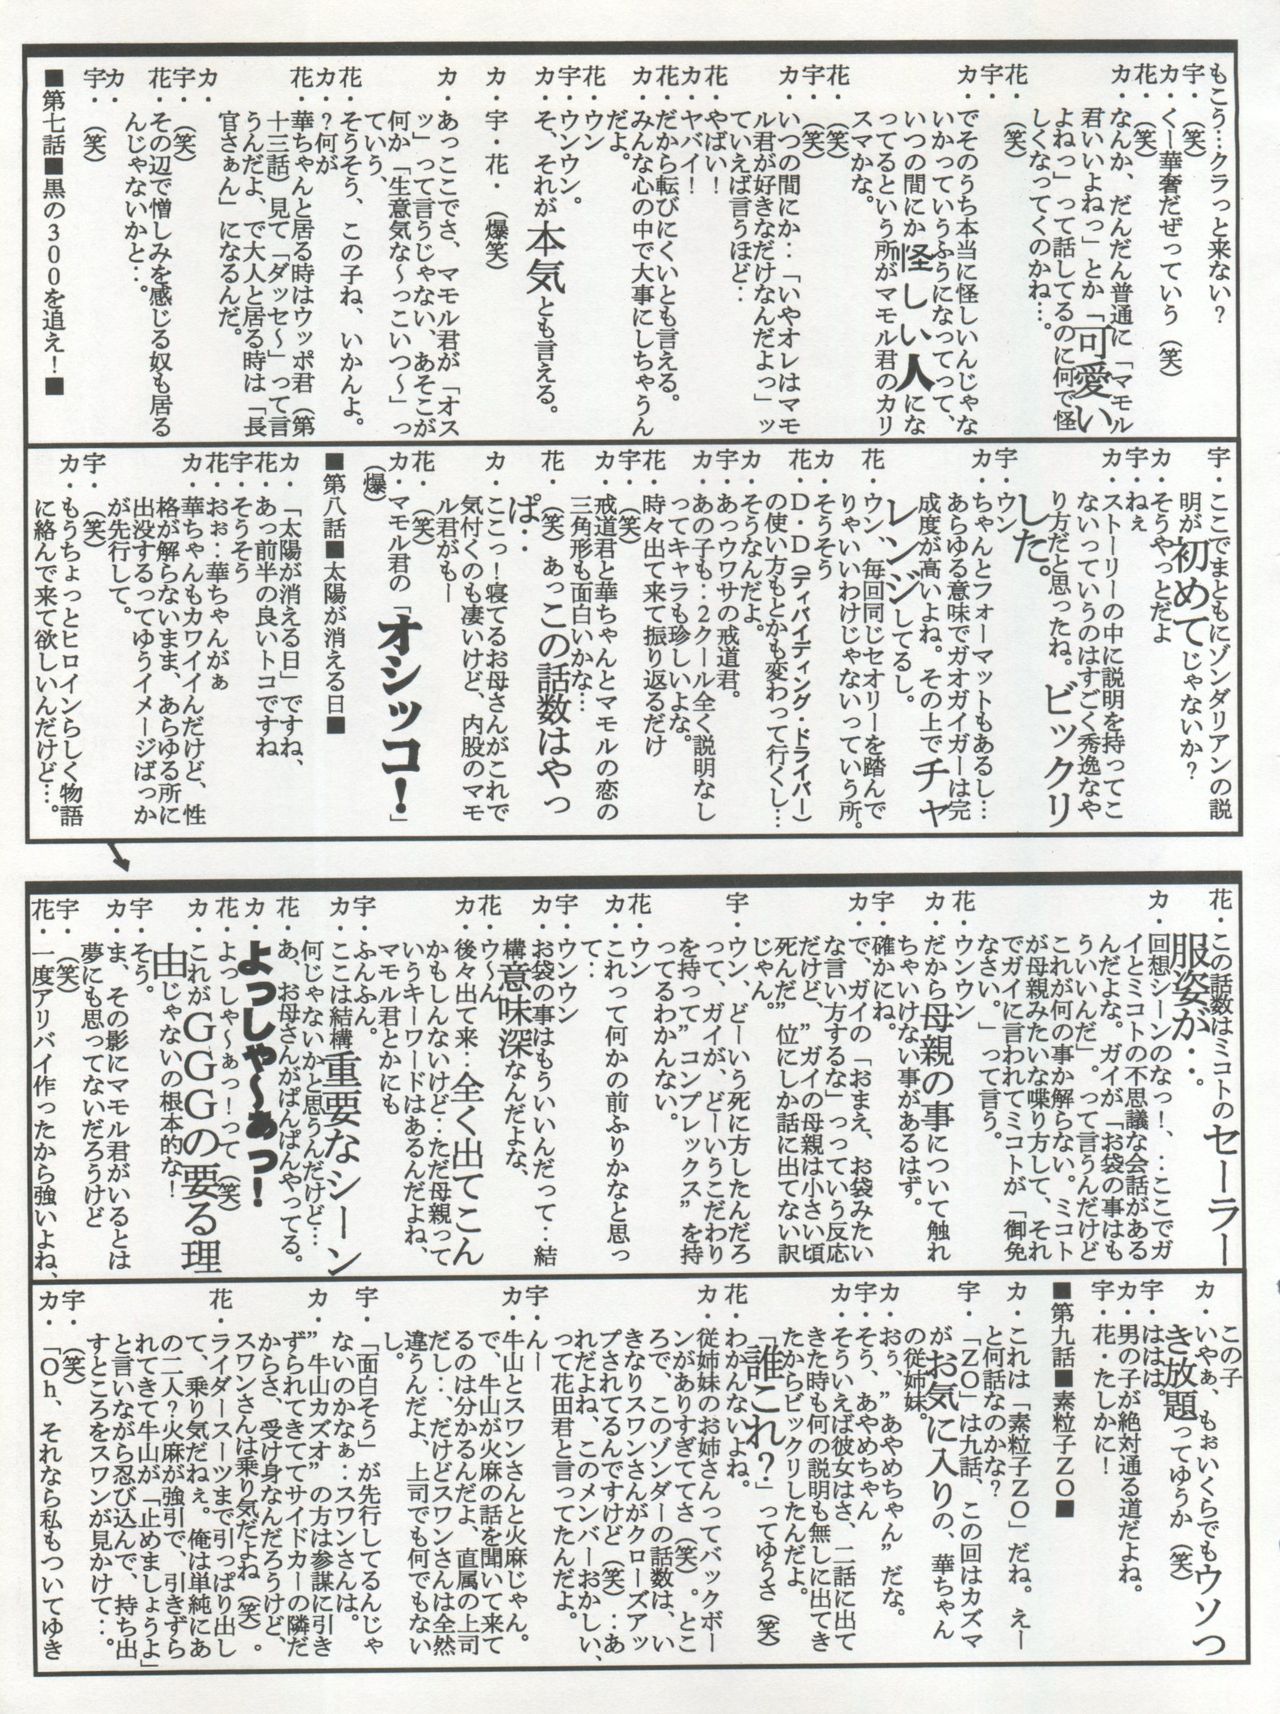 もこう…クラっと来ない?
宇・(笑)
カ・くー華奢だぜっていう(笑)
花・(笑)
カ・なんか、だんだん普通に「マモル
君いいよねっ」とか「可愛い
よねっ」って話してるのに何で怪
しくなってくのかね…。
花・(笑)
宇・
カ・でそのうち本当に怪しいんじゃな
いかっていうふうになってって、
いつの間にか怪しい人にな
ってるという所がマモル君のカリ
スマかな。
花・(笑)
宇・(笑)
カ・いつの間にか‥「いやオレはマモ
ル君が好きなだけなんだよっ」ッ
ていえば言うほど‥
花・やばい!
カ・ヤバイ!
花・だから転びにくいとも言える。
カ・みんな心の中で大事にしちゃうん
だよ。
花・ウン
宇・ウンウン。
カ・そ、それが本気とも言える。
カ・宇・花・(爆笑)
カ・あっここでさ、マモル君が「オス
ッ」って言うじゃない、あそこが
何か「生意気な〜っこいつ〜」っ
ていう、
花・そうそう、この子ね、いかんよ。
カ・?何が
花・華ちゃんと居る時はウッポ君(第
十三話)見て「ダッセ〜」って言
うんだよ、で大人と居る時は「長
官さぁん」になるんだ。
カ・
宇・(笑)
花・その辺で憎しみを感じる奴も居る
んじゃないかと‥。
カ・
宇・(笑)
■第七話■黒の300を追え!■
宇・ここでまともにゾンダリアンの説
明が初めてじゃないか?
カ・そうやっとだよ
宇・ねぇ
カ・ストーリーの中に説明を持ってこ
ないっていうのはすごく秀逸なや
り方だと思ったね。ビックリ
した。
宇・ウン
カ・ちゃんとフォーマットもあるし…
あらゆる意味でガオガイガーは完
成度が高いよね。その上でチャ
レンジしてるし。
花・ウン、毎回同じセオリーを踏んで
りゃいいわけじゃないっていう所。
カ・そうそう
花・D・D(ディバイディング・ドライバー)
の使い方もとかも変わって行くし…
カ・そうなんだよ。
宇・あっウワサの戒道君。
カ・あの子も‥2クール全く説明なし
ってキャラも珍しいよな。
花・時々出て来て振り返るだけ
宇・(笑)
カ・戒道君と華ちゃんとマモルの恋の
三角形も面白いかな…
花・(笑)あっこの話数はやっ
ぱ‥
カ・ここっ!寝てるお母さんがこれで
気付くのも凄いけど、内股のマモ
ル君がもー
花・(笑)
カ・マモル君の「オシッコ!」
(爆)
■第八話■太陽が消える日■
カ・「太陽が消える日」ですね、
花・あっ前半の良いトコですね
宇・そうそう
花・おぉ‥華ちゃんがぁ
カ・華ちゃんもカワイイんだけど、性
格が解らないまま、あらゆる所に
出没するってゆうイメージばっか
が先行して。
宇・(笑)
カ・もうちょっとヒロインらしく物語
に絡んで来て欲しいんだけど…。
花・この話数はミコトのセーラー
服姿が‥。
カ・回想シーンのなっ!、‥ここでガ
イとミコトの不思議な会話がある
んだよな。ガイが「お袋の事はも
ういいんだ」って言うんだけど
これが何の事か解らない。ミコト
が母親みたいな喋り方して、それ
でガイに言われてミコトが「御免
なさい。」って言う。
花・ウンウン
カ・だから母親の事について触れ
ちゃいけない事があるはず。
宇・確かにね。
カ・で、ガイの「おまえ、お袋みたい
な言い方するな」っていう反応
だけど、"ガイの母親は小さい頃
死んだ"位にしか話に出てない訳
じゃん。
宇・ウン、どーいう死に方したんだろ
って、ガイが、どーいうこだわり
を持って"コンプレックス"を持
ってるわかんない。
カ・これって何かの前ふりかなと思っ
て‥
花・ウン
宇・ウンウン
カ・お袋の事はもういいんだって‥結
構意味深なんだよな、
花・ウ〜ん
カ・後々出て来‥全く出てこん
かもしんないけど‥ただ母親って
いうキーワードはあるんだよね、
マモル君とかにも
宇・ふんふん。
カ・ここは結構重要なシーン
何じゃないかと思うんだけど…
花・あ、お母さんがぱんぱんやってる。
カ・よっしゃ〜あっ!
花・よっしゃ〜ぁっ!って(笑)
カ・これがGGGの要る理
由じゃないの根本的な!
宇・そう。
カ・ま、その影にマモル君がいるとは
夢にも思ってないだろうけど
宇・(笑)
花・一度アリバイ作ったから強いよね、
この子
カ・いやぁ、もぉいくらでもウソつ
き放題ってゆうか(笑)
宇・ははは。
カ・男の子が絶対通る道だよね。
宇・花・たしかに!
■第九話■素粒子ZO■
カ・これは「素粒子ZO」だね。えー
と何話なのかな?
宇・「ZO」は九話、この回はカズマ
がお気に入りの、華ちゃん
の従姉妹。
カ・おぅ、"あやめちゃん"だな。
宇・そう、あやめちゃん
カ・そういえば彼女はさ、二話に出て
きた時も何の説明も無しに出てき
たからビックリしたんだよ。
「誰これ?」ってゆうさ(笑)
花・わかんないよね。
カ・従姉妹のお姉さんってバックボー
ンがありすぎててさ(笑)。とこ
ろで、このゾンダーの話数は、い
きなりスワンさんがクローズアッ
プされてるんですけど(笑)‥あ
れだよね、このメンバーおかしい、
って花田君と言ってたんだよ。
宇・んー
カ・牛山とスワンさんと火麻じゃん。
で、牛山が火麻の話を聞いて来て
るのは分かるんだよ、直属の上司
だし‥、だけどスワンさんは全然
違うんだよ、上司でも何でもない
し。
宇・「面白そう」が先行してるんじゃ
ないのかなぁ‥スワンさんは。
カ・"牛山カズオ"の方は参謀に引き
ずられてきててサイドカーの隣だ
からさ、受け身なんだろうけど、
スワンさんは乗り気だよね(笑)。
花・ライダースーツまで引っぱり出し
て、乗り気だねぇ。俺は単純にあ
の二人?火麻が強引で、引きずら
れてきて牛山が「止めましょうよ」
と言いながら忍び込んで、持ち出
すところをスワンが見かけて‥。
宇・(笑)
カ・「Oh、それなら私もついてゆき